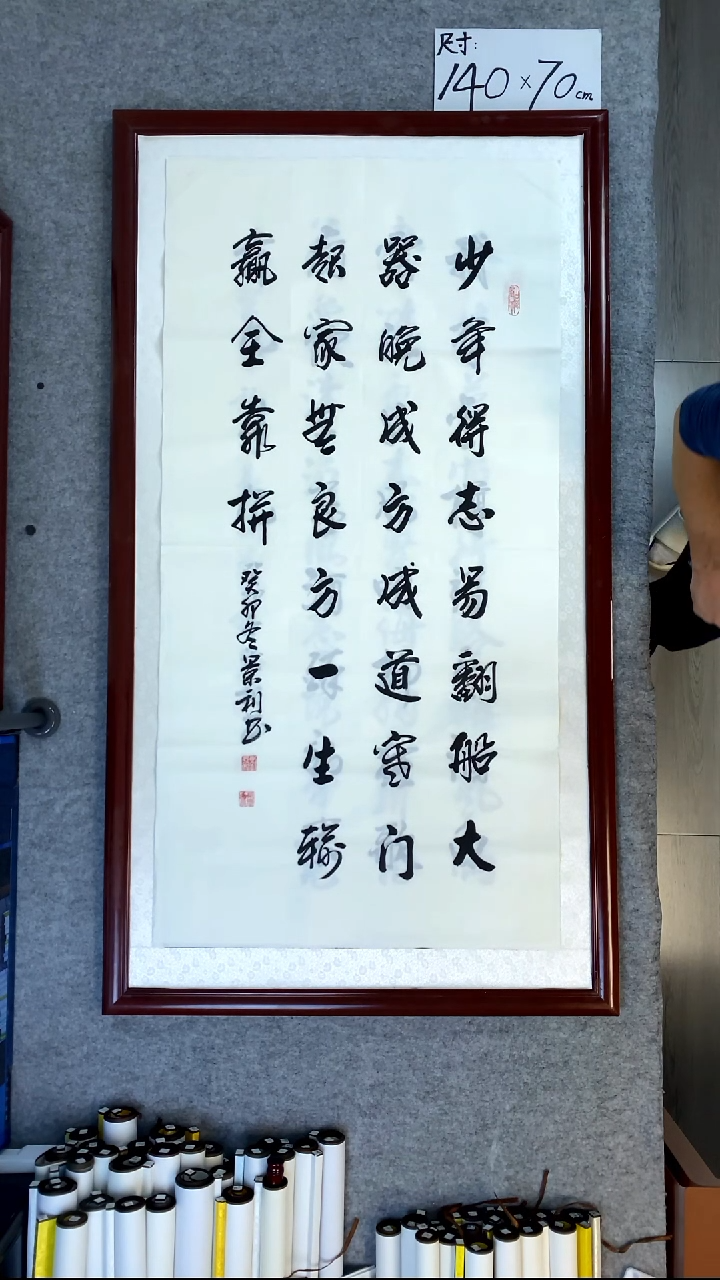 尺寸:
140×70cm
少年得志易翻船大
器晚成方成道寒门
起家無良方一生输
赢全靠拼
癸卯冬景利书